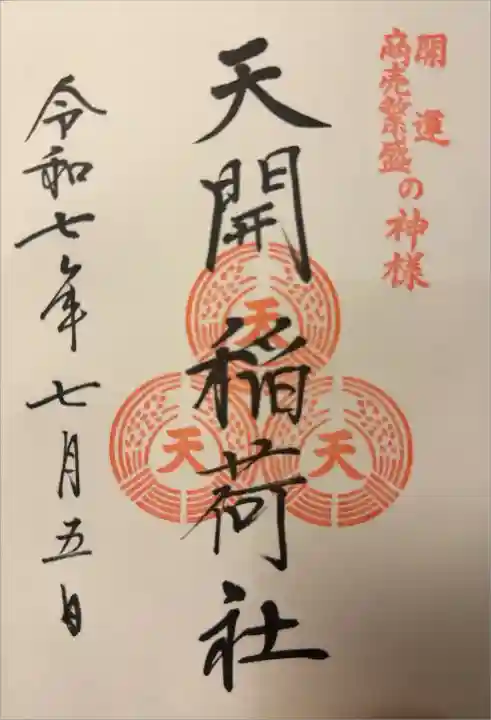 開運
商売繁盛の神様
天開稲荷社
天
天
天
令和七年七月五日